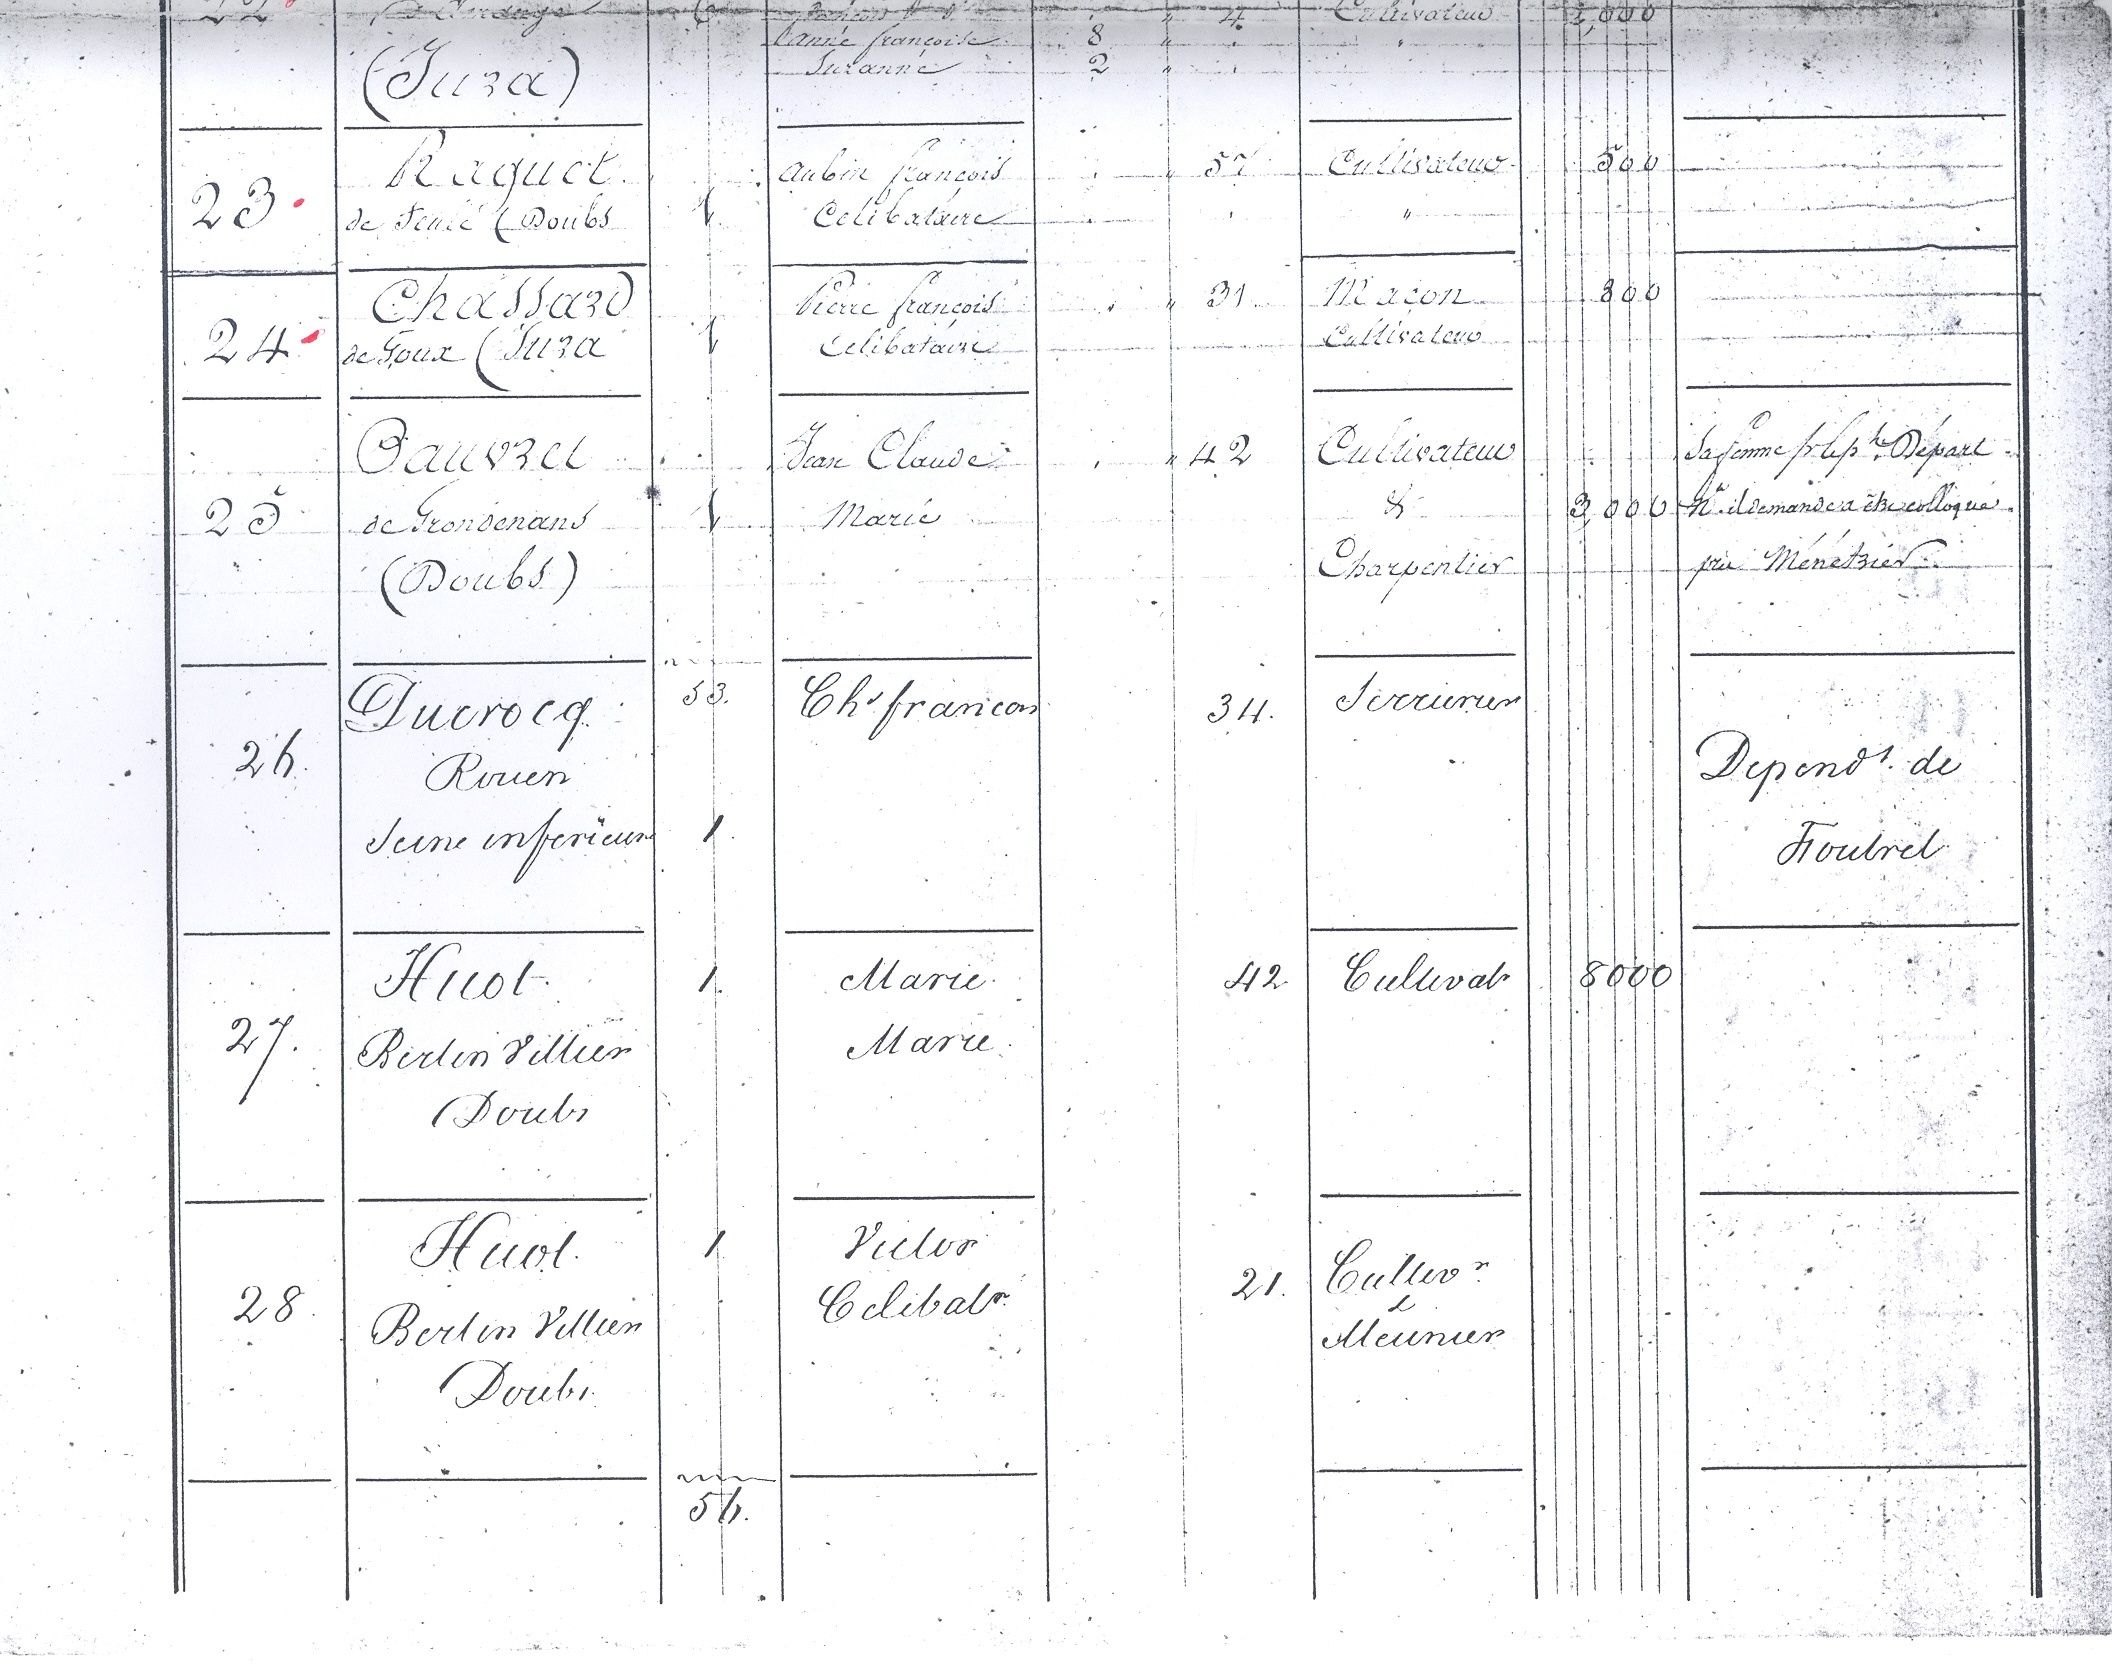 22 6 4 Cultivateur 2,000
Anne françoise 8 " "
(Jura) Suzanne 2 "
23 Raguet 1 Aubin françois " 57 Cultivateur 500
de (Doubs Celibataire "
24 Chassard 1 Pierre françois " 31 Maçon 800
de Goux (Jura Celibataire Cultivateur
25 Jean Claude " 42 Cultivateur Sa femme Départ
de Grondenans 1 Marié & 3,000 il demande a être colloqué
(Doubs) Charpentier pres Ménétrier
26. Ducrocq 53. Chs francois 34. Serrurier
Rouen Dependt. de
Seine inferieure 1. Foubrel
27. Huot 1. Marie 42 Cultivatr 8000
Berlin Villier Marie
Doubs
28 Huot. 1 Victor 21. Cultivr
Berlin Villier Celibatr &
Doubs Meunier
56.